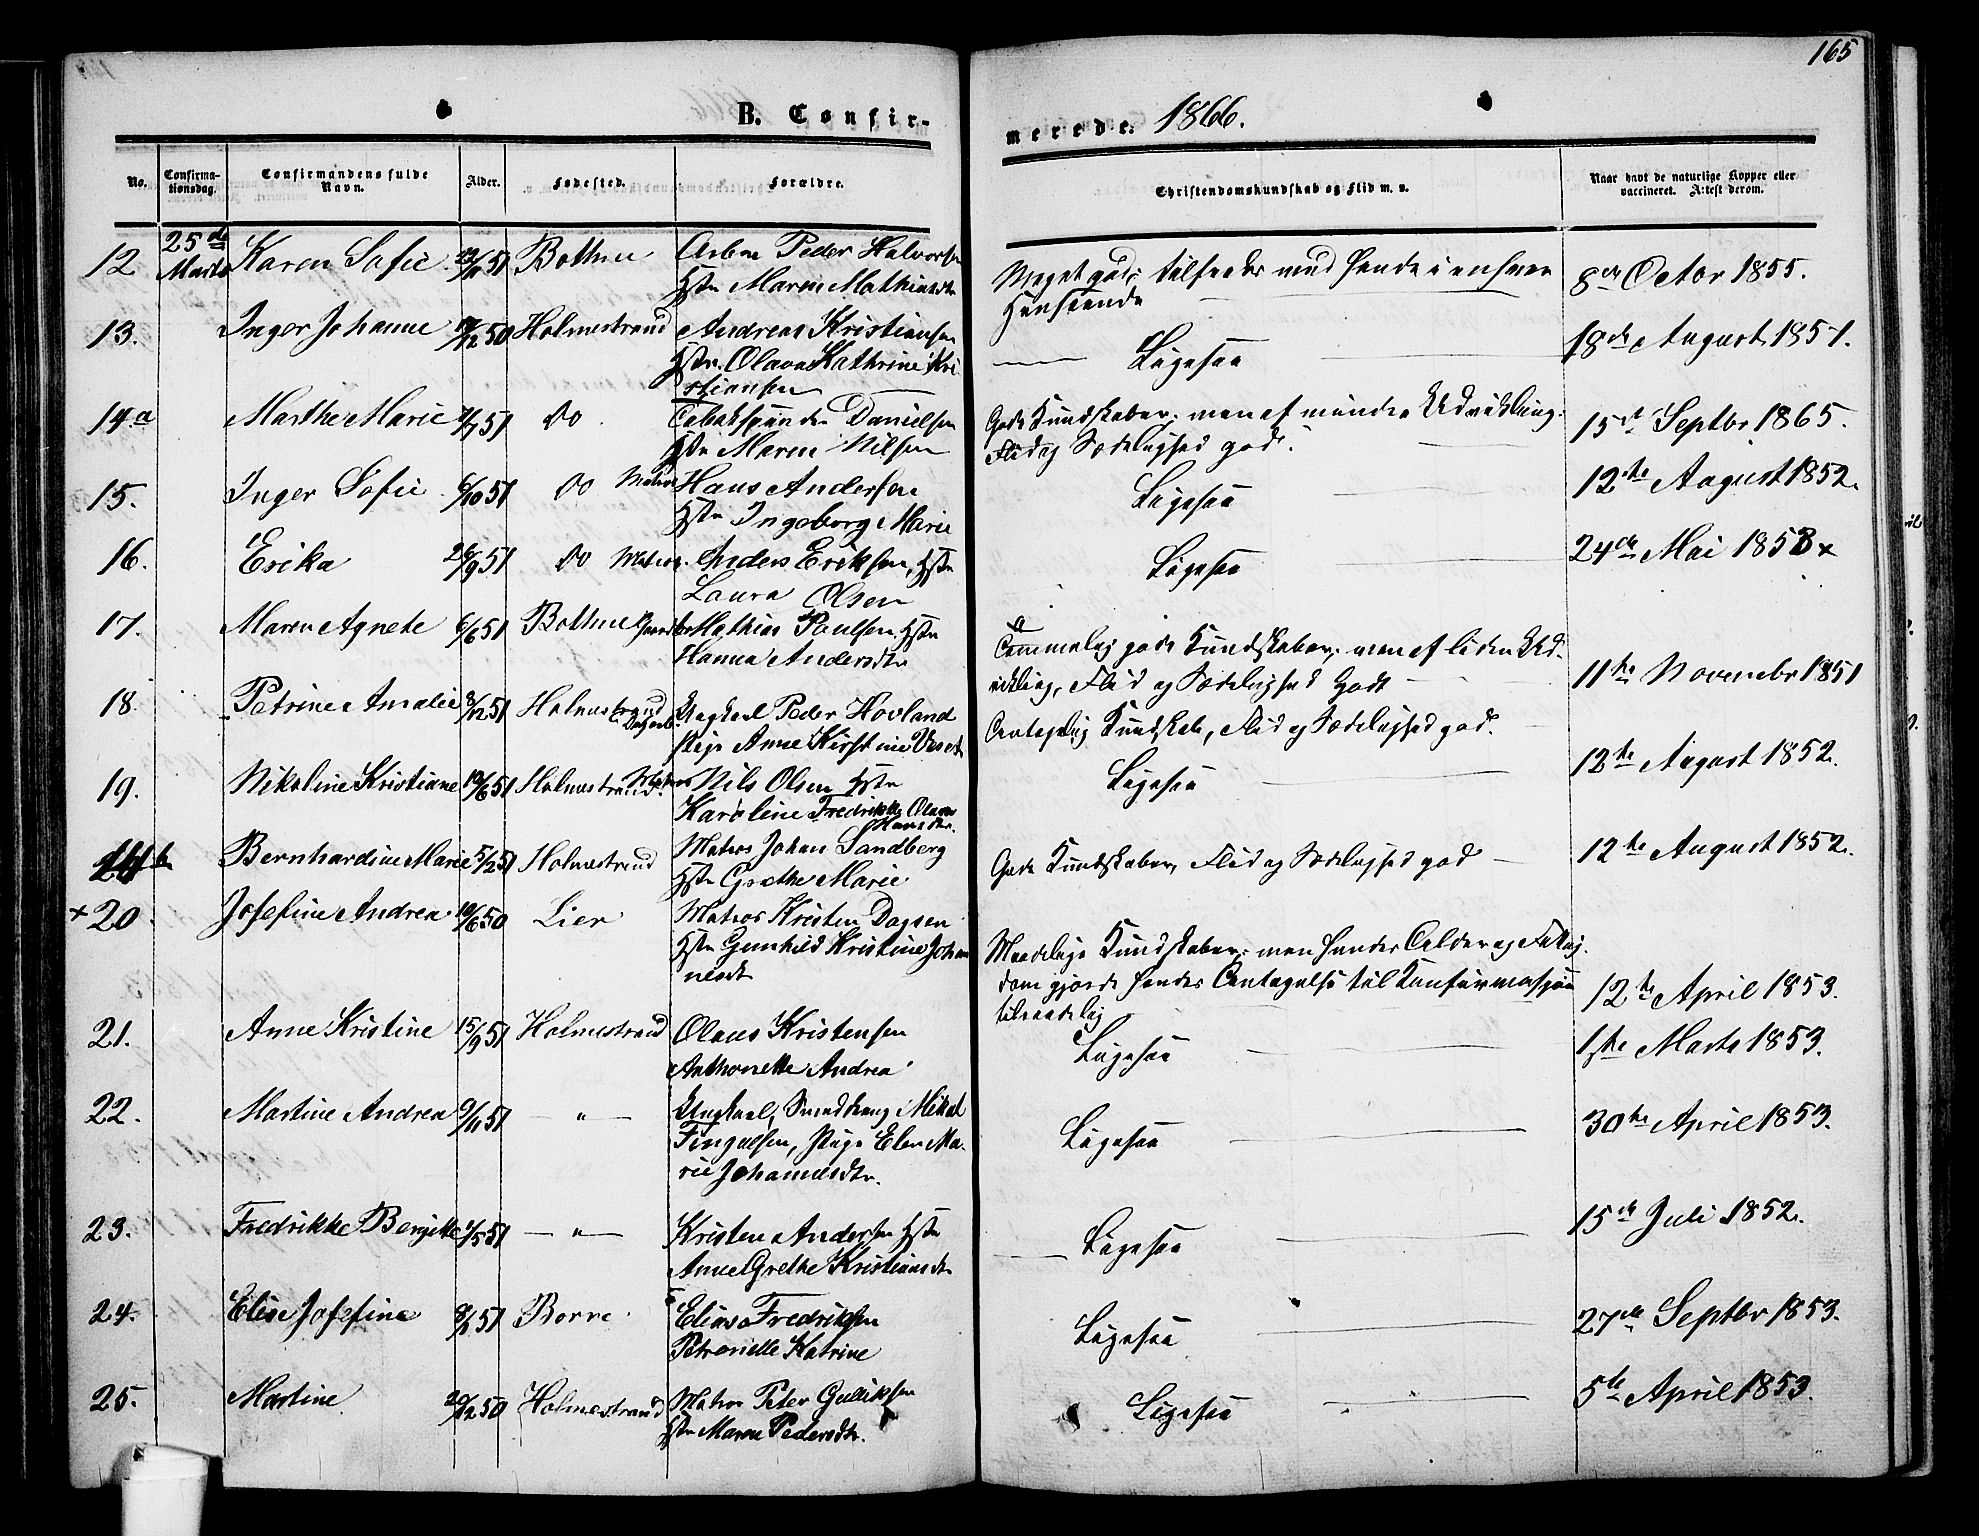 165
B. Confir-
merede. 1866.
No.
Confirma-
tionsdag.
Confirmandens fulde
Navn.
Alder.
Fødested.
Forældre.
Christendomskundskab og Flid m. v.
Naar havt de naturlige Kopper eller
vaccineret. Attest derom.
25de
12 Marts Karen Sofie 51 Botten Arbm Peder Halvorsen
Hstr Maren Mathiasdtr
Meget gode; tilfreds med hende i enhver
Henseende
8de Octbr 1855.
13. Inger Johanne 12 50 Holmestrand Andreas Kristiansen
Hstr. Olava Kathrine Kri
stiansen
Ligesaa
18de August 1851.
14a Marthe Marie 7 51 Do Tobaksspinder Danielsen
Hstr Maren Nilsen
Gode Kundskaber, men af mindre Udvikling.
Flid og Sædelighed god.
15de Septbr 1865.
15. Inger Sofie 6/10 51 Do Matros Hans Andersen
Hstr Ingeborg Marie
Ligesaa
12te August 1852.
16. Erika 9 51 Do Matros. Anders Eriksen, Hstr
Laura Olsen
Ligesaa
24de Mai 1853 x
17. Maren Agnete 6/6 51 Botten Mathias Paulsen Hstr
Hanna Andersdtr
Temmelig gode Kundskaber, men af liden Ud-
vikling, Flid og Sædelighed Godt
11te Novembr 1851
18. Petrine Amalie 8/12 51 Holmestrand Ungkarl Peder Hovland
Pige Anne Kirstine
Antagelig Kundskab, Flid og Sædelighed god.
19. Nikoline Kristiane 10/6 51 Holmestrand Matros Nils Olsen Hstr
Karoline Fredrikke Olava
Hansdtr.
Ligesaa
12te August 1852.
14b Bernhardine Marie 5/12 51 Holmestrand Matros Johan Sandberg
Hstr Grethe Marie
Gode Kundskaber, Flid og Sædelighed god
12te August 1852.
x 20. Josefine Andrea 10/6 50 Lier Matros Kristen Dagsen
Hstr Gunhild Kristine Johan
nesdt
Maadelige Kundskaber, men hendes Alder og Fattig
dom gjorde hendes Antagelse til Konfirmasjon
tilraadelig
12te April 1853.
21. Anne Kristine 15/9 51 Holmestrand Olaus Kristensen
Anthonette Andrea
Ligesaa
1ste Marts 1853.
22. Martine Andrea 9/11 51 — " — Ungkarl, Smeddreng Mikal
Fingalsen, Pige Elen Ma-
rie Johannesdtr.
Ligesaa
30te April 1853.
23. Fredrikke Bergitte 1/5 51 — " — Kristen Andersen Hstr
Anne Grethe Kristiansdtr
Ligesaa
15de Juli 1852.
24. Elise Josefine 51 Borre Elias Fredriksen
Petronille Katrine
Ligesaa
27de Septbr 1853.
25. Martine 12 50 Holmestrand Matros Peter Gulliksen
Hstr Maren Pedersdtr.
Ligesaa
5te April 1853.